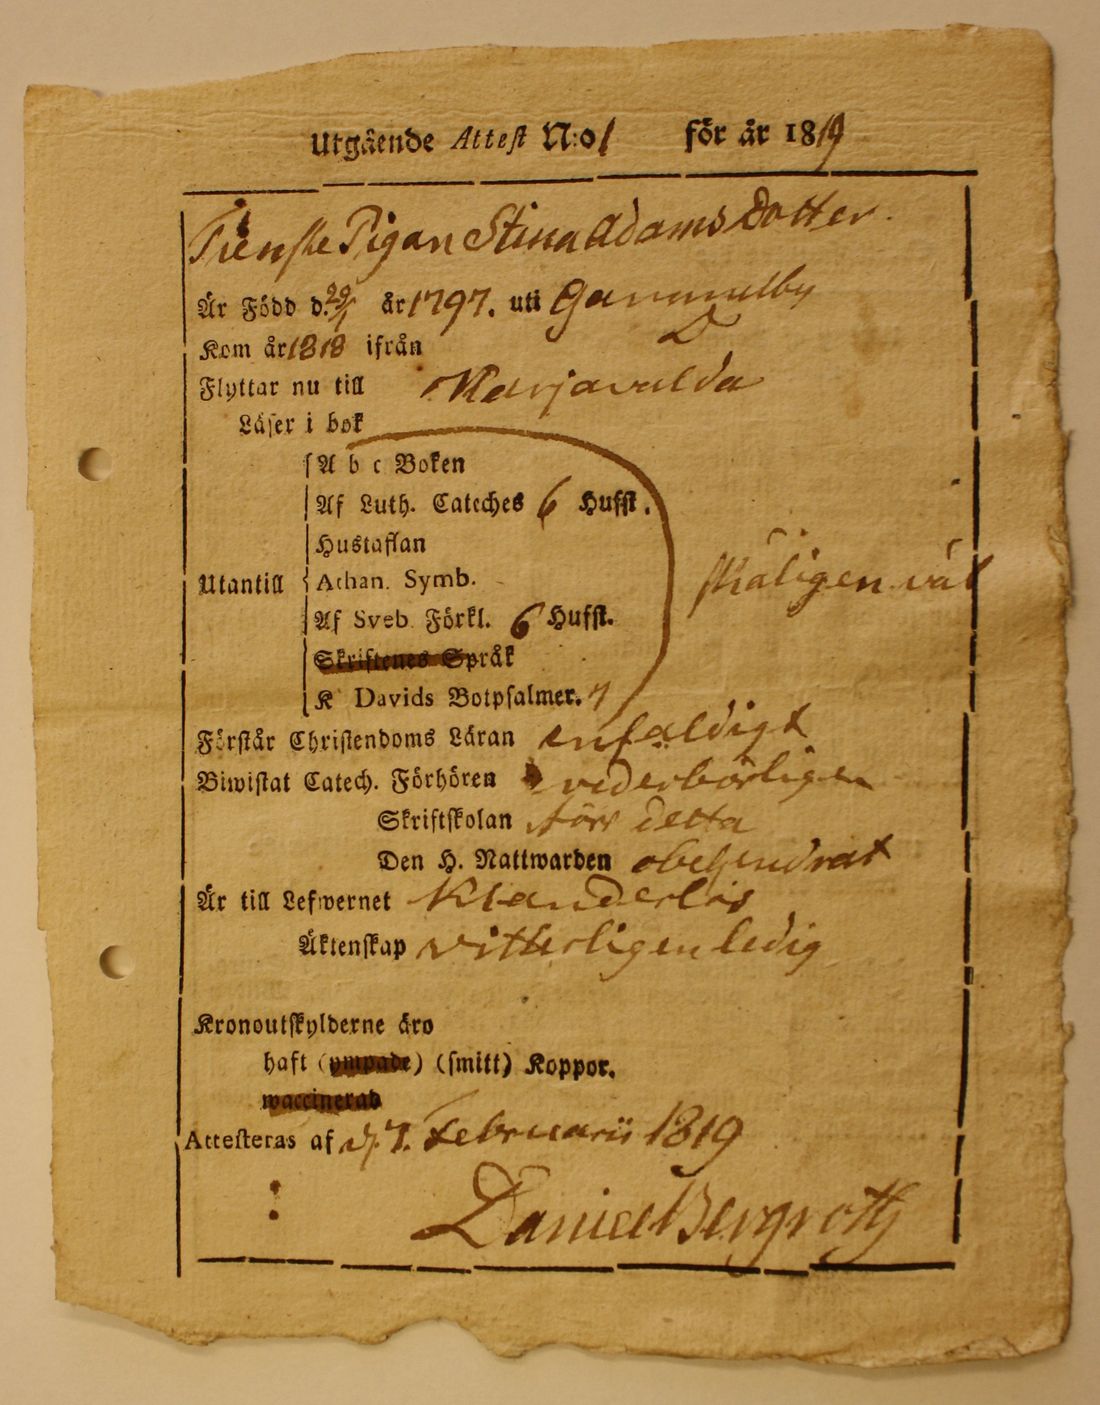 Utgående Attest N:o 1 för år 1819
Tienste Pigan Stina Adams Dotter.
Är Född d. 29/1 år 1797. uti Gammelby
Kom år 1818 ifrån D
Flyttar nu till Karjavalda
Läser i bok
A b c Boken
Af Luth. Cateches 6 Hufst.
Hustaflan
Utantill Athan. Symb. skäligen väl
Af Sveb. Förkl. 6 Hufst.
Skriftenes Språk
K Davids Botpsalmer. 7
Förstår Christendoms Läran enfaldigt
Biwistat Catech. Förhören vederbörligen
Skriftskolan förr detta
Den H. Nattwarden obehindrat
Är till Lefwernet Klanderlös
Äktenskap vitterligen ledig
Kronoutskylderne äro
haft (ympade) (smitt) Koppor.
waccinerad
Attesteras af d. 7. Februarii 1819
Daniel Bergroth